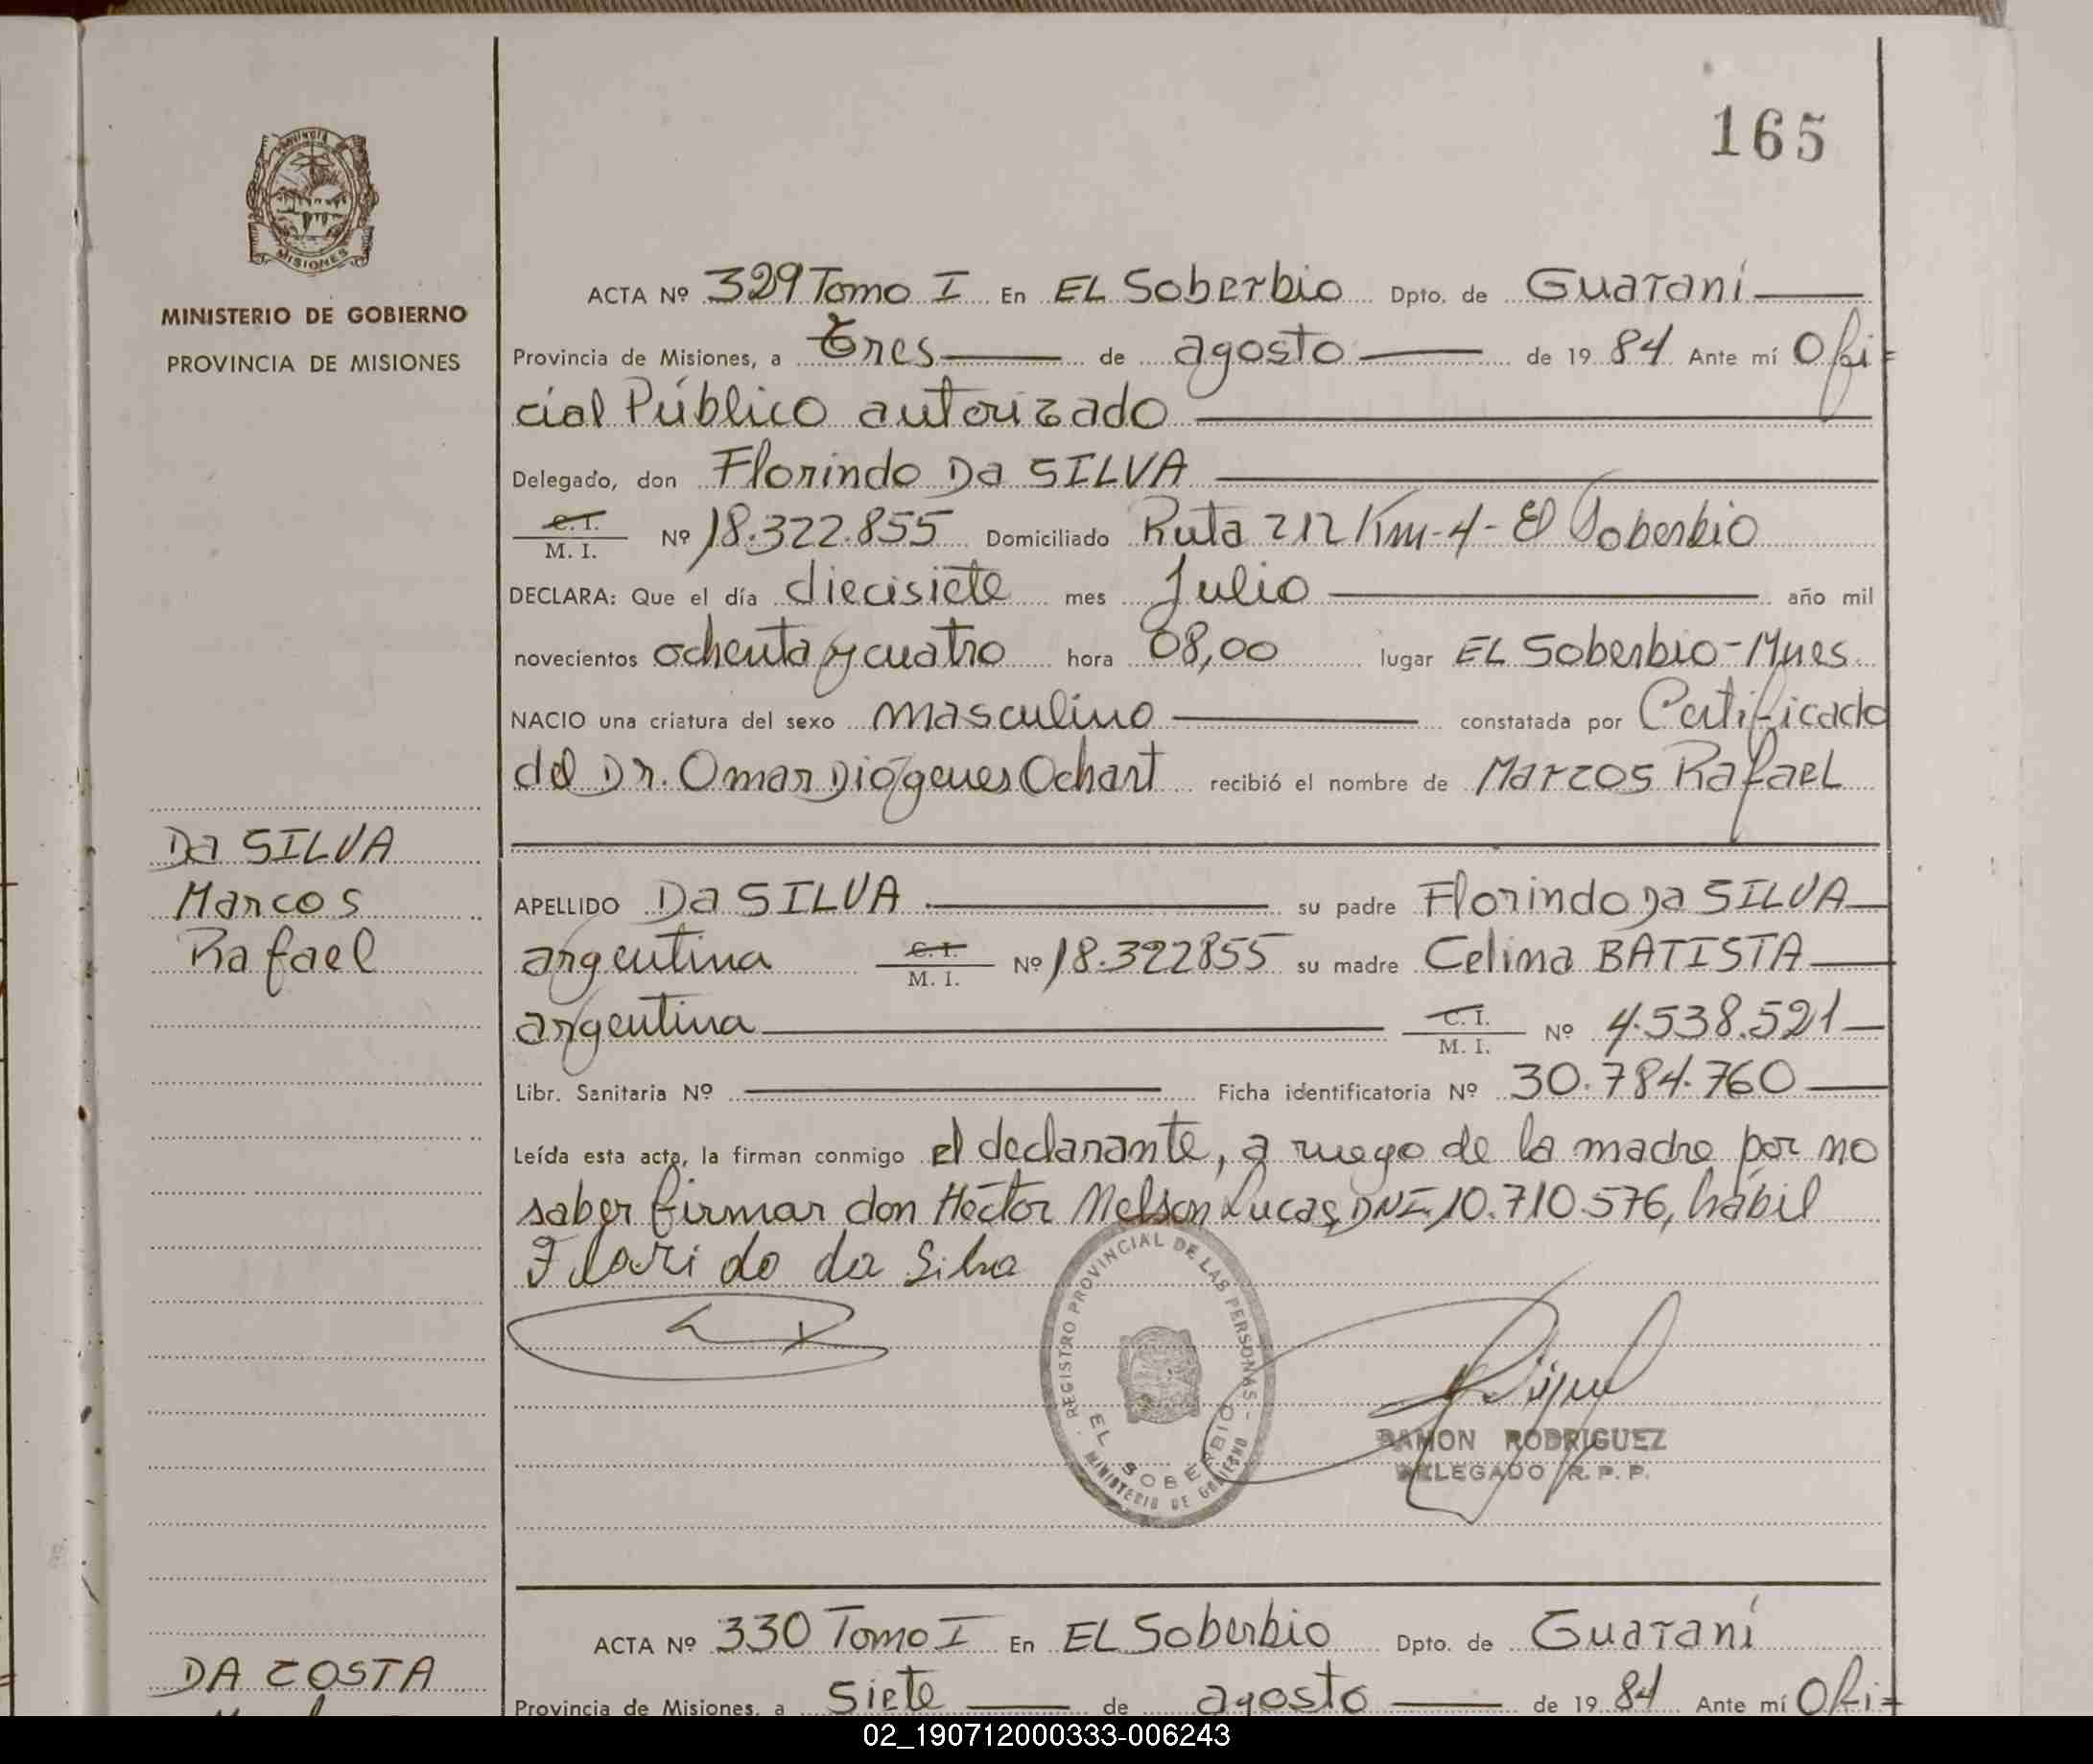 165
PROVINCIA
MISIONES
MINISTERIO DE GOBIERNO
PROVINCIA DE MISIONES
ACTA Nº 329 Tomo I En EL Soberbio Dpto. de Guaraní
Provincia de Misiones, a tres de agosto de 1984 Ante mí Ofi=
cial Público autorizado
Delegado, don Florindo Da SILVA
C.I. M. I. Nº 18.322.855 Domiciliado Ruta 212 Km-4- El Soberbio
DECLARA: Que el día diecisiete mes Julio año mil
novecientos ochenta y cuatro hora 08,00 lugar EL Soberbio-Mnes
NACIO una criatura del sexo masculino constatada por Certificado
del Dr. Omar Diógenes Ochart recibió el nombre de Marcos Rafael
Da SILVA
Marcos
Rafael
APELLIDO Da SILVA su padre Florindo Da SILVA
argentina C.I. M. I. Nº 18.322855 su madre Celima BATISTA
argentina C.I. M. I. Nº 4.538.521
Libr. Sanitaria Nº Ficha identificatoria Nº 30.784.760
Leída esta acta, la firman conmigo el declarante, a ruego de la madre por no
saber firmar don Héctor Nelson Lucas, DNI. 10.710.576, hábil
Floari do da Silva
REGISTRO PROVINCIAL DE LAS PERSONAS - MINISTERIO DE GOBIERNO
EL SOBERBIO
RAMON RODRIGUEZ
DELEGADO R. P. P.
ACTA Nº 330 Tomo I En EL Soberbio Dpto. de Guaraní
DA COSTA
Provincia de Misiones, a Siete de agosto de 1984 Ante mí Ofi=
02_190712000333-006243